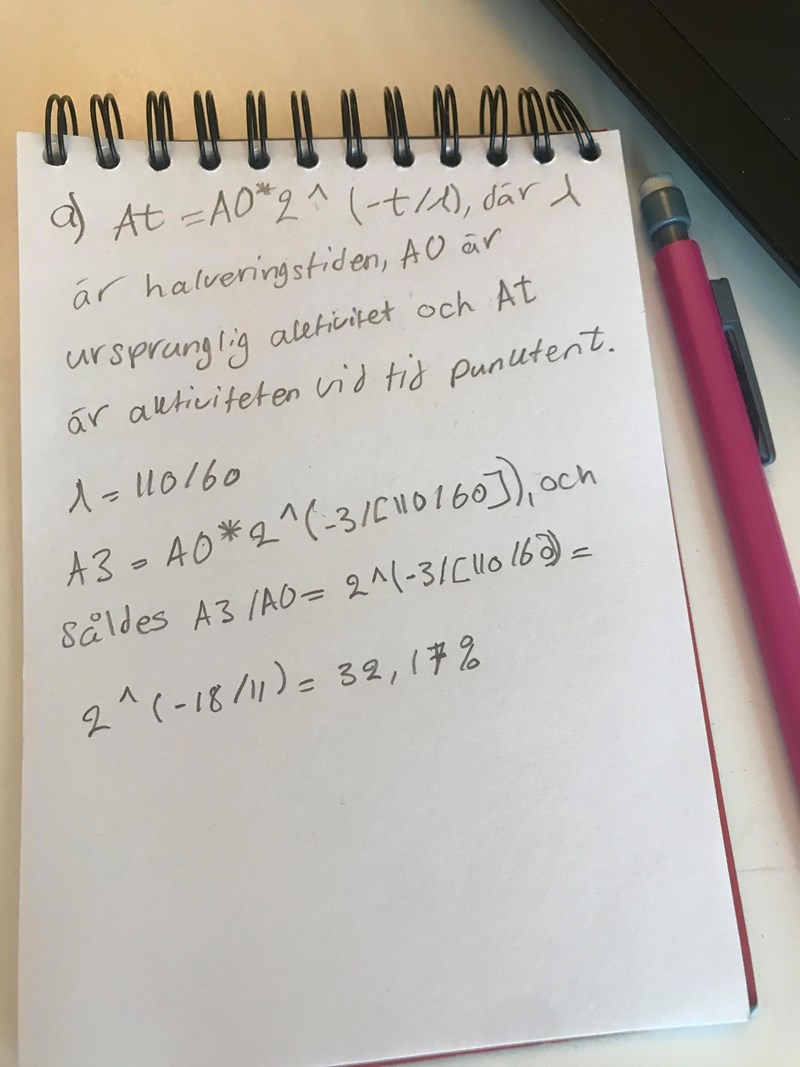 a) At = A0*2^(-t/λ), där λ
är halveringstiden, A0 är
ursprunglig aktivitet och At
är aktiviteten vid tid punkten t.
λ = 110/60
A3 = A0*2^(-3/[110/60]), och
såldes A3/A0 = 2^(-3/[110/60) =
2^(-18/11) = 32,17%